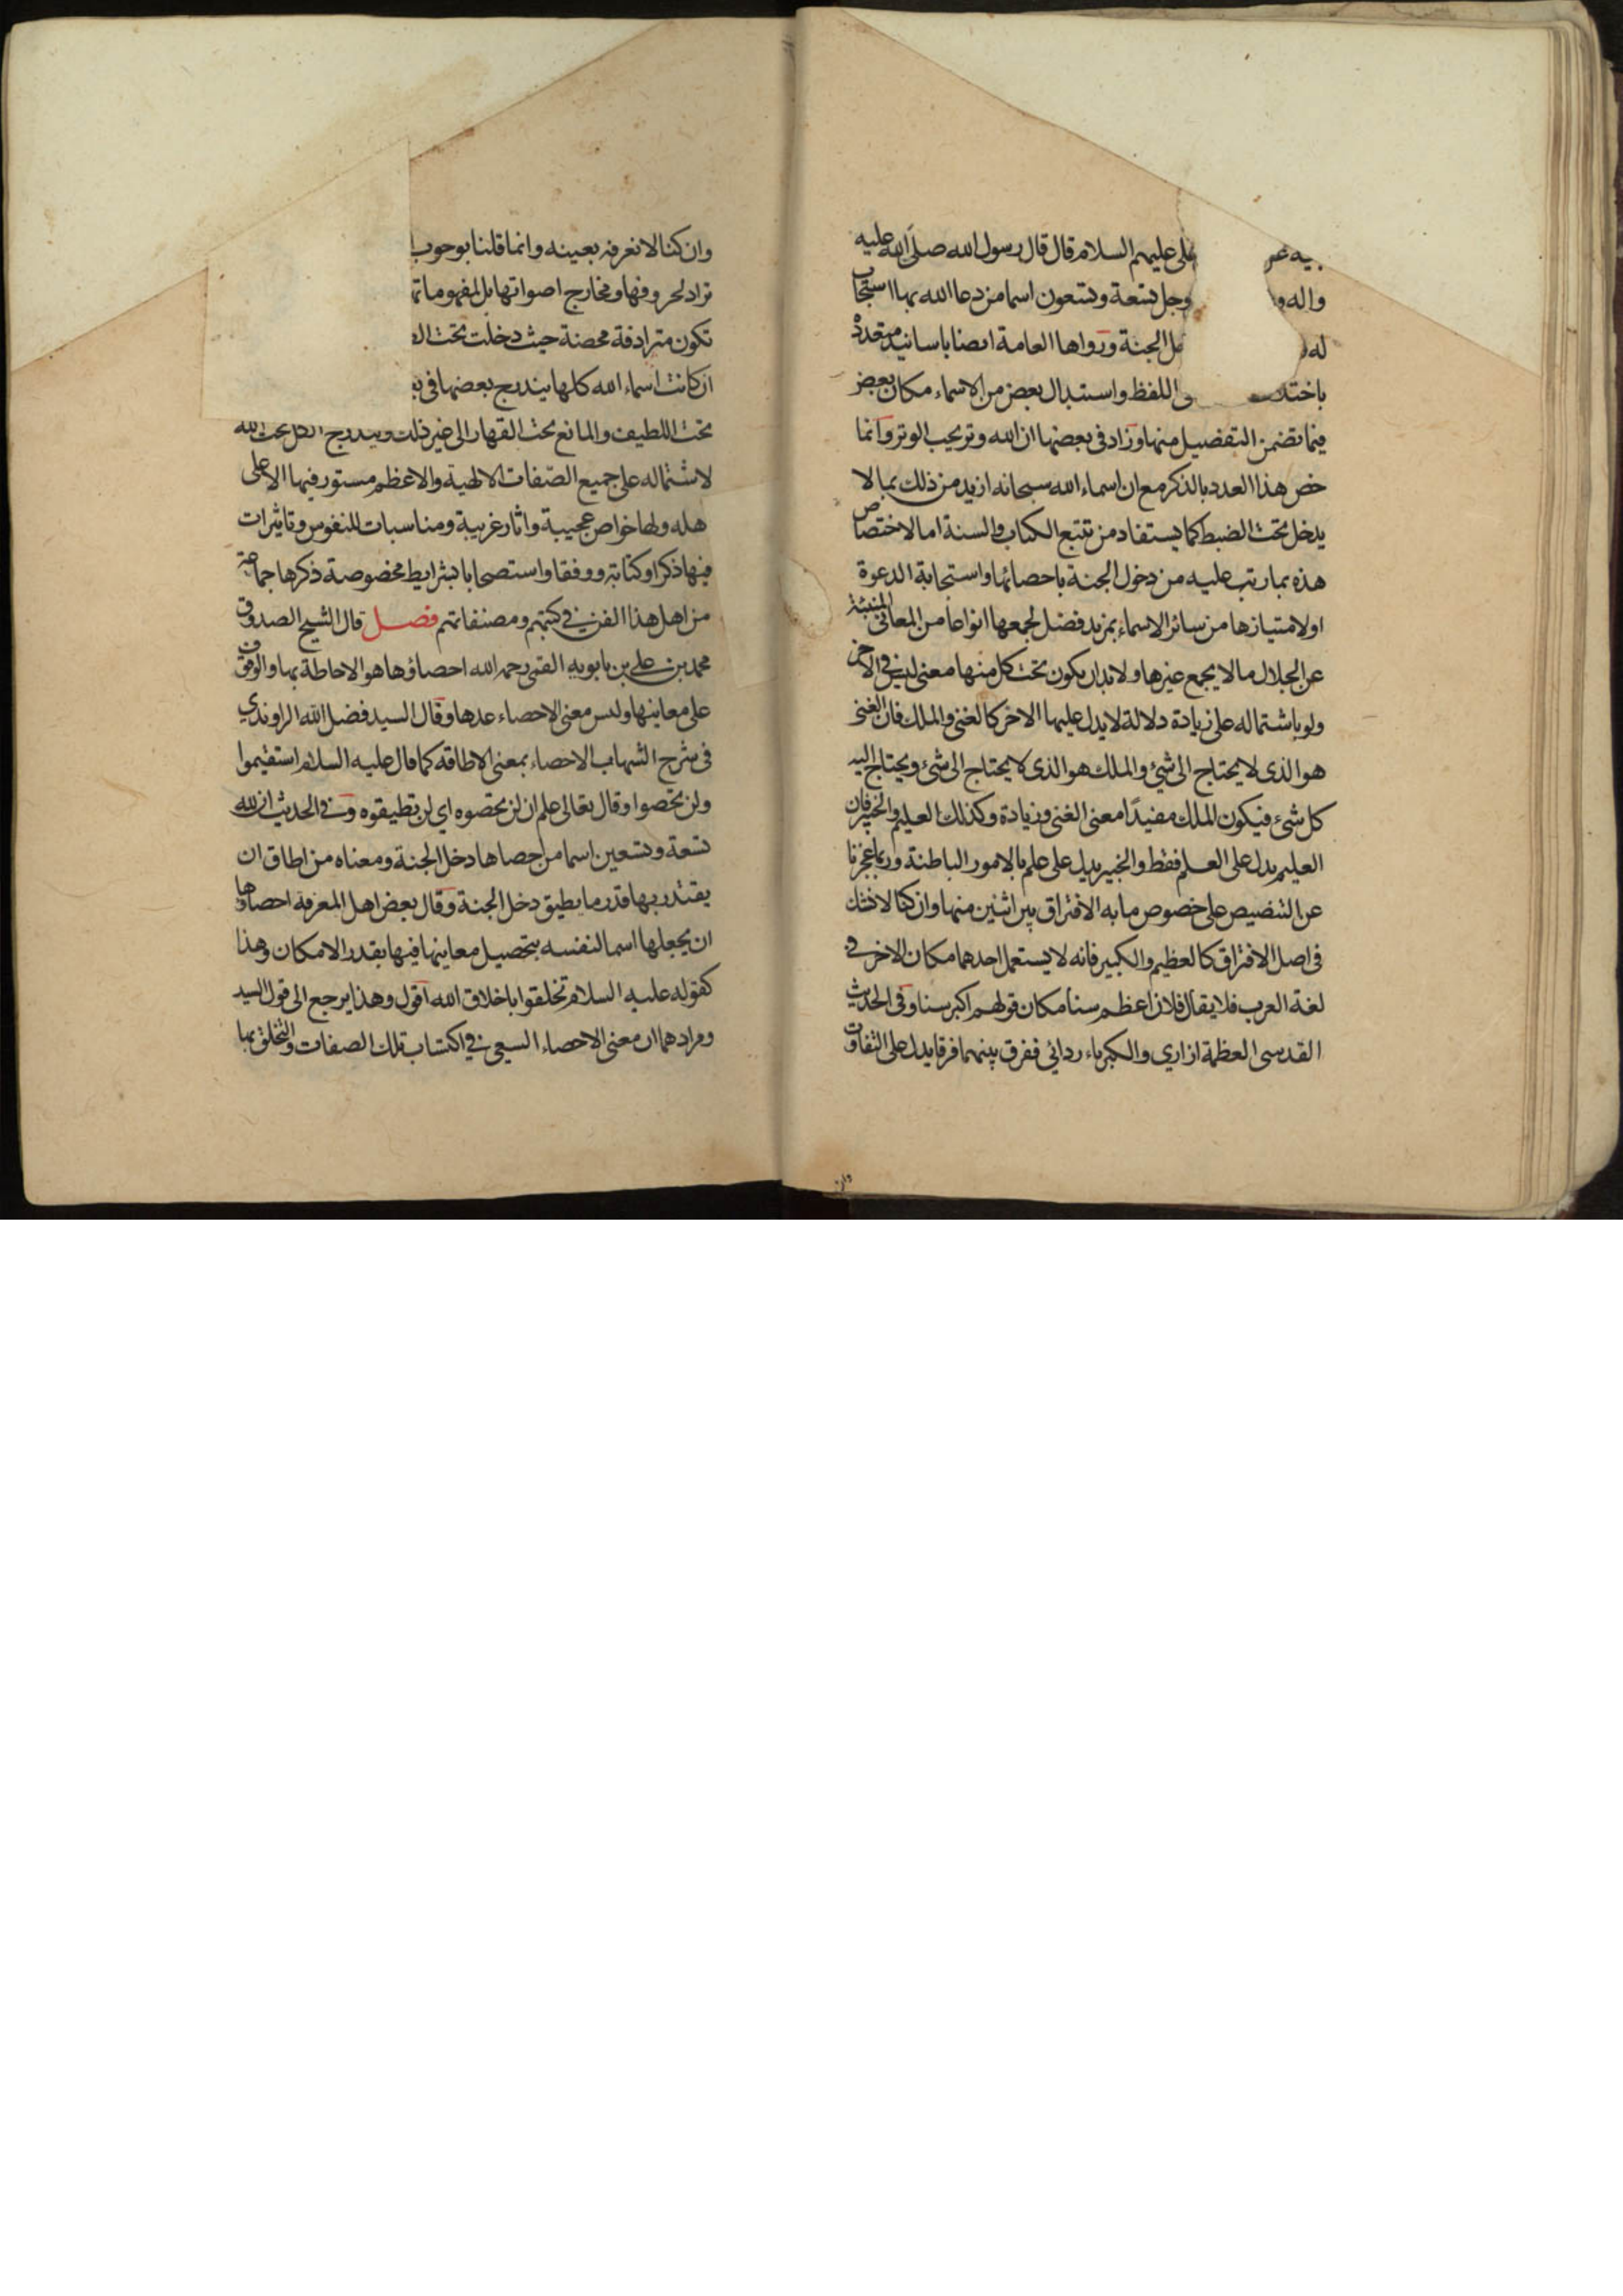 بيه عن علي عليهم السلام قال قال رسول الله صلى الله عليه
واله وجل تسعة وتسعون اسما من دعا الله بها استجاب
له الجنة ورواها العامة ايضا باسانيد متعددة
اللفظ واستبدال بعض من الاسماء مكان بعض
فيما تضمن التفصيل منها وزاد في بعضها ان الله وتر يحب الوتر وانما
خص هذا العدد بالذكر مع ان اسماء الله سبحانه ازيد من ذلك بما لا
يدخل تحت الضبط كما يستفاد من تتبع الكتاب والسنة اما لاختصاص
هذه بما رتب عليه من دخول الجنة باحصائها واستجابة الدعوة
او لامتيازها من سائر الاسماء بمزيد فضل لجمعها انواعا من المعاني المنبئة
عن الجلال ما لا يجمع غيرها ولا بد ان يكون تحت كل منها معنى ليس في الاخر
ولو باشتماله على زيادة دلالة لا يدل عليها الاخر كالغنى والملك فان الغنى
هو الذى لا يحتاج الى شئ والملك هو الذى لا يحتاج الى شئ ويحتاج اليه
كل شئ فيكون الملك مفيدا معنى الغنى وزيادة وكذلك العليم والخبير فان
العليم يدل على العلم فقط والخبير يدل على علم بالامور الباطنة وربما عجزنا
عن التنصيص على خصوص ما به الافتراق بين اثنين منها وان كنا لا نشك
فى اصل الافتراق كالعظيم والكبير فانه لا يستعمل احدهما مكان الاخر في
لغة العرب فلا يقال فلان اعظم سنا مكان قولهم اكبر سنا وفى الحديث
القدسى العظمة ازاري والكبرياء ردائي ففرق بينهما فرقا يدل على التفاوت
وان
وان كنا لا نعرفه بعينه وانما قلنا بوجوب
تراد لحروفها ومخارج اصواتها بل لمفهوماتها
تكون مترادفة محضة حيث دخلت تحت
ان كانت اسماء الله كلها يندرج بعضها فى
تحت اللطيف والمانع تحت القهار الى غير ذلك ويندرج الكل تحت الله
لاشتماله على جميع الصفات الالهية والاعظم مستور فيها الا على
اهله ولها خواص عجيبة واثار غريبة ومناسبات للنفوس وتاثيرات
فيها ذكرا وكتابة ووفقا واستصحابا بشرايط مخصوصة ذكرها جماعة
من اهل هذا الفن في كتبهم ومصنفاتهم فصل قال الشيخ الصدوق
محمد بن علي بن بابويه القمى رحمه الله احصاؤها هو الاحاطة بها والوقوف
على معانيها وليس معنى الاحصاء عدها وقال السيد فضل الله الراوندي
فى شرح الشهاب الاحصاء بمعنى الاطاقة كما قال عليه السلام استقيموا
ولن تحصوا وقال تعالى علم ان لن تحصوه اي لن تطيقوه وفي الحديث ان لله
تسعة وتسعين اسما من احصاها دخل الجنة ومعناه من اطاق ان
يقتدر بها قدر ما يطيق دخل الجنة وقال بعض اهل المعرفة احصاؤها
ان يجعلها اسما لنفسه بتحصيل معانيها فيها بقدر الامكان وهذا
كقوله عليه السلام تخلقوا باخلاق الله اقول وهذا يرجع الى قول السيد
ومرادهما ان معنى الاحصاء السعى في اكتساب تلك الصفات والتخلق بها